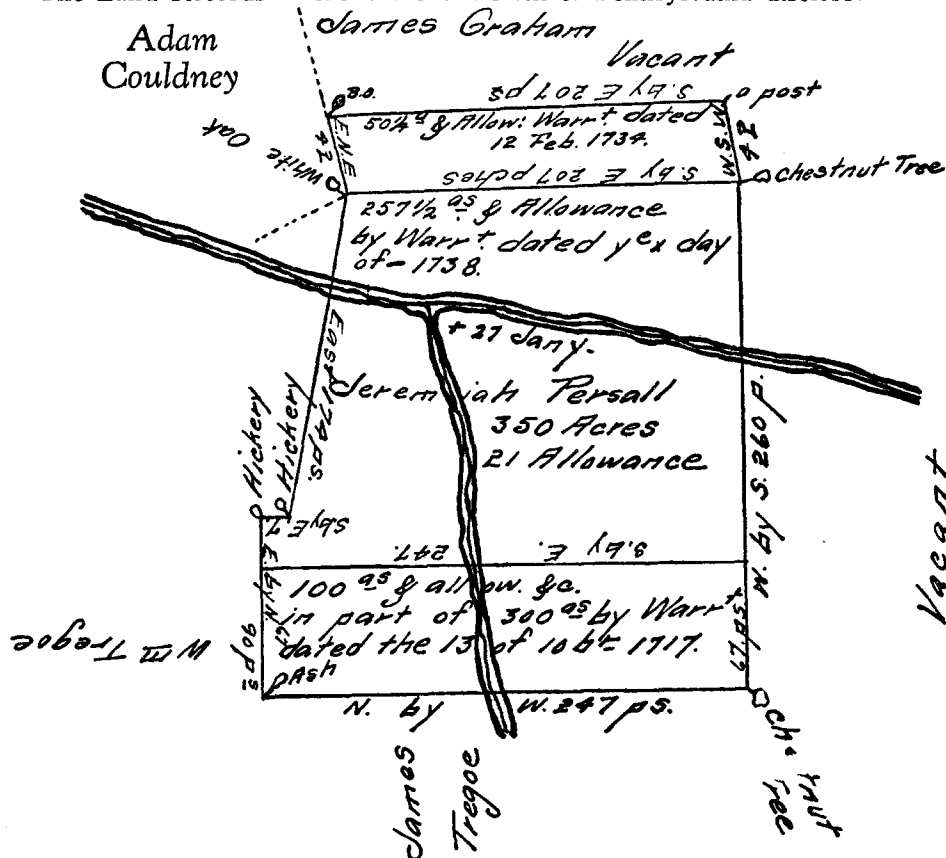 Adam
Couldney
James Graham
Vacant
B.O.
S. by E 207 ps
a post
50¼ as & Allow: Warrt dated
12 Feb. 1734.
E.N.E
42
W.S.W
42
White Oak
S. by E 207 pches
Chestnut Tree
257½ as & Allowance
by Warrt. dated ye x day
of - 1738.
+ 27 Jany.
East 174 ps.
Jeremiah Persall
350 Acres
21 Allowance
Hickery
Hickery
S by E 7
W. by S. 260 p.
Vacant
S. by E. 247.
100 as & allow. &c.
in part of 300 as by Warrt
dated the 13 of 10br 1717.
E by N
90 ps
67 ps +
Wm Tregoe
Ash
N. by W. 247 ps.
James
Tregoe
Tree